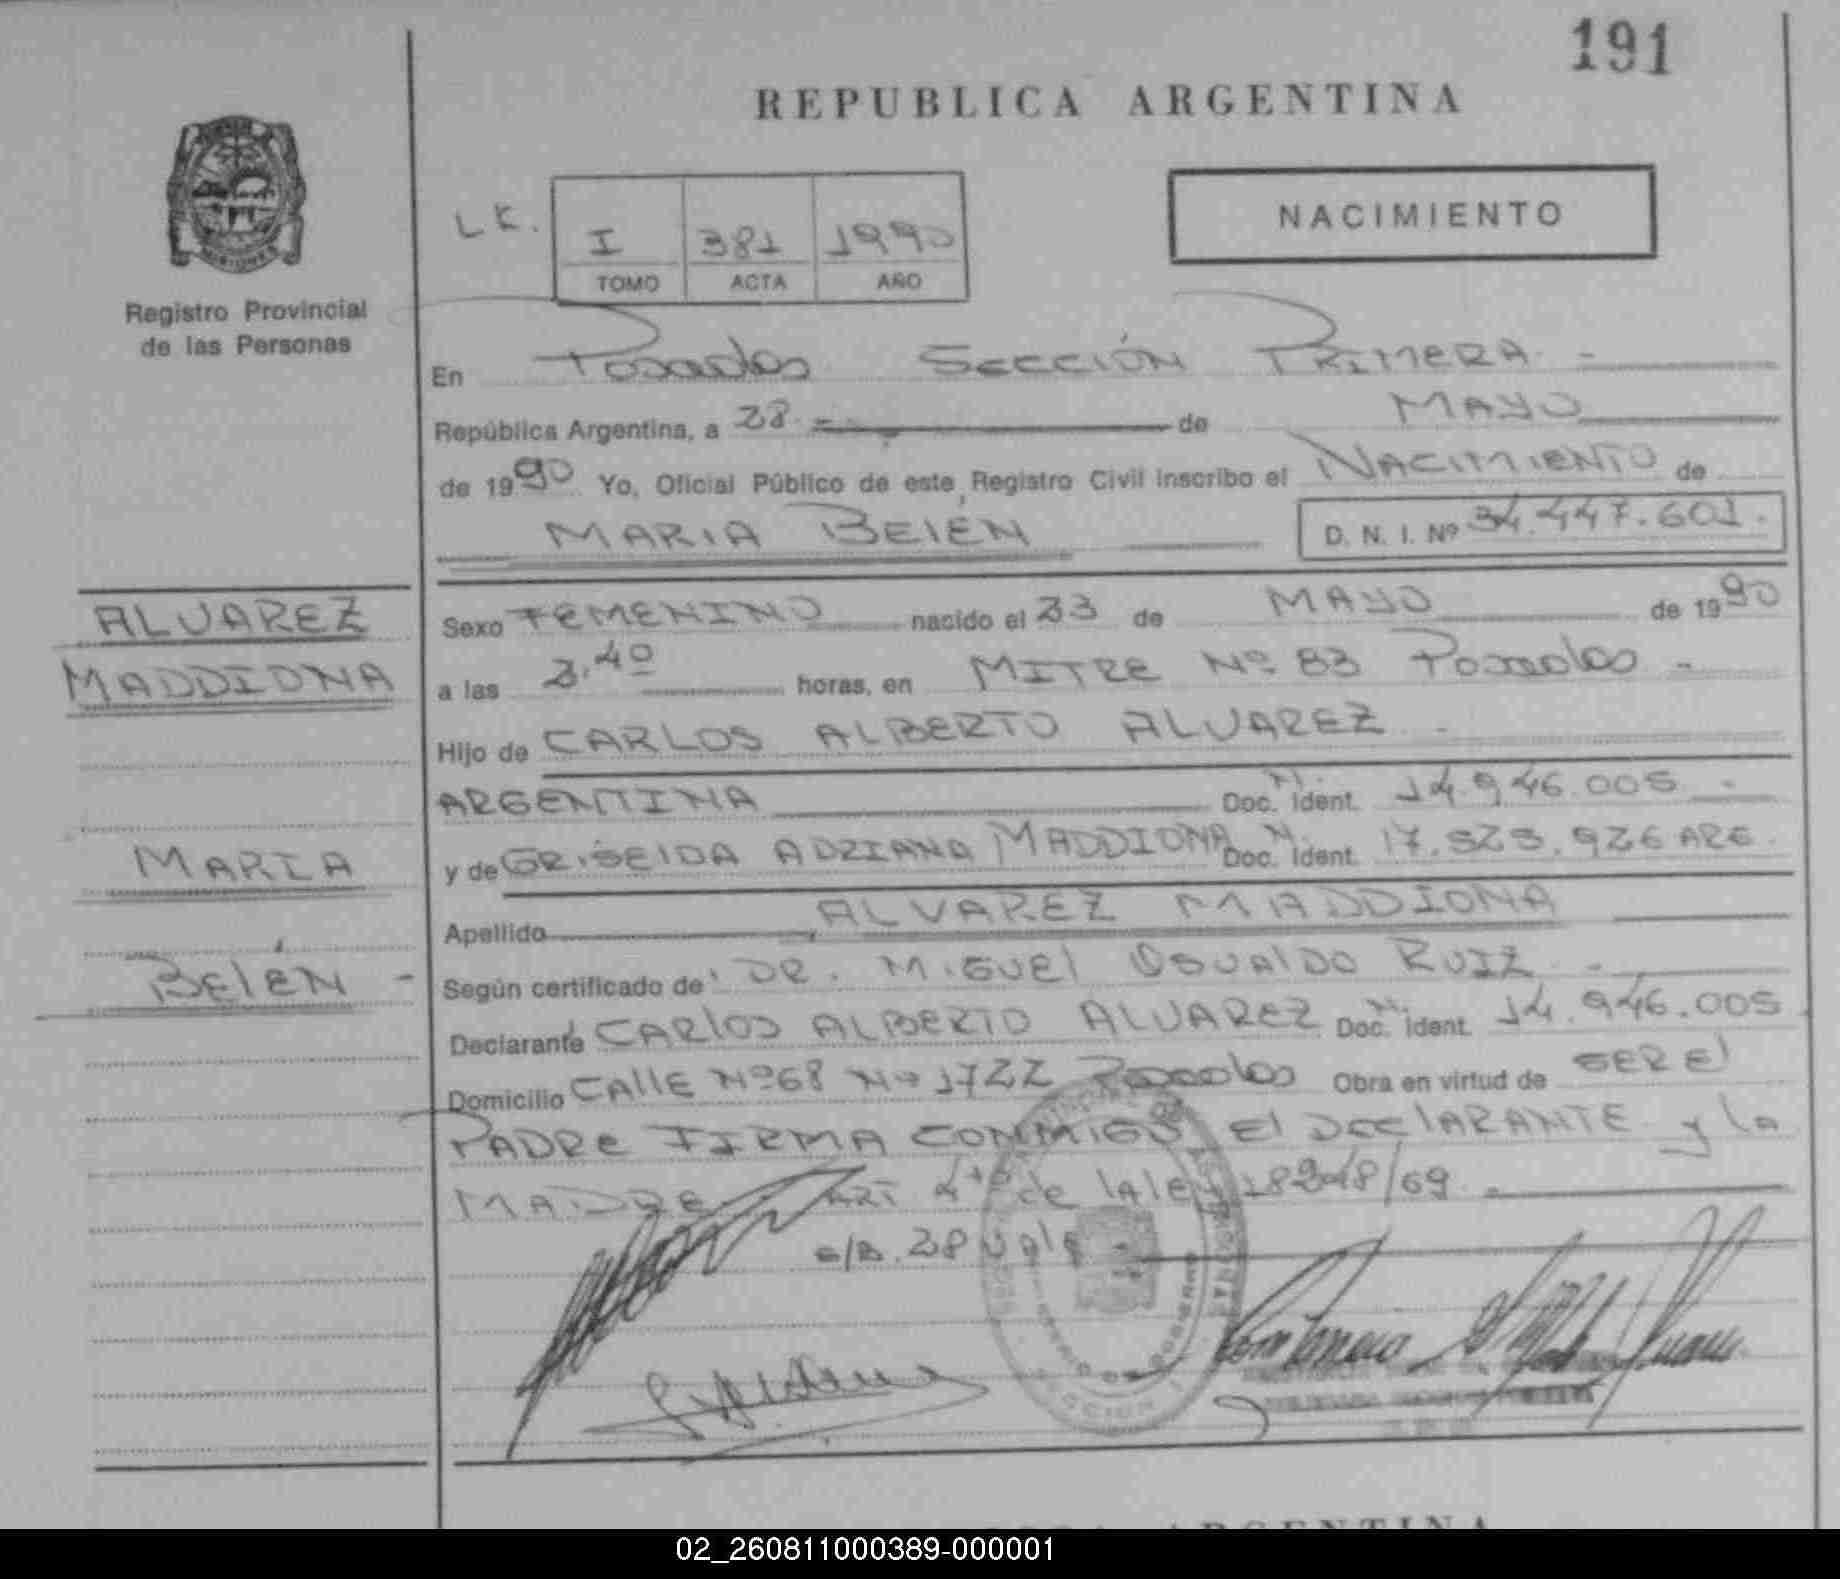 191
REPUBLICA ARGENTINA
MISIONES
Registro Provincial
de las Personas
L.K.
I 381 1990
TOMO ACTA AÑO
NACIMIENTO
En Posadas SECCIÓN PRIMERA.-
República Argentina, a 28.- de MAYO
de 1990 Yo, Oficial Público de este Registro Civil inscribo el NACIMIENTO de
MARIA BELÉN D. N. I. Nº 34.447.601.
ALVAREZ
MADDIONA
MARIA
BELÉN -
Sexo FEMENINO nacido el 23 de MAYO de 1990
a las 2,40 horas, en MITRE Nº 83 Posadas -
Hijo de CARLOS ALBERTO ALVAREZ.-
ARGENTINA Doc. Ident. M. 14.946.005.-
y de GRISELDA ADRIANA MADDIONA Doc. Ident. N. 17.523.926 ARG.
Apellido ALVAREZ MADDIONA
Según certificado de DR. MIGUEL OSVALDO RUIZ.-
Declarante CARLOS ALBERTO ALVAREZ Doc. Ident. M. 14.946.005
Domicilio CALLE Nº68 Nº 1722 Posadas Obra en virtud de SER El
PADRE FIRMA CONMIGO El DEClARANTE y la
MADRE. ART 4to de la ley 18248/69.-
s/R. 28 vale -
SECCION 1
02_260811000389-000001